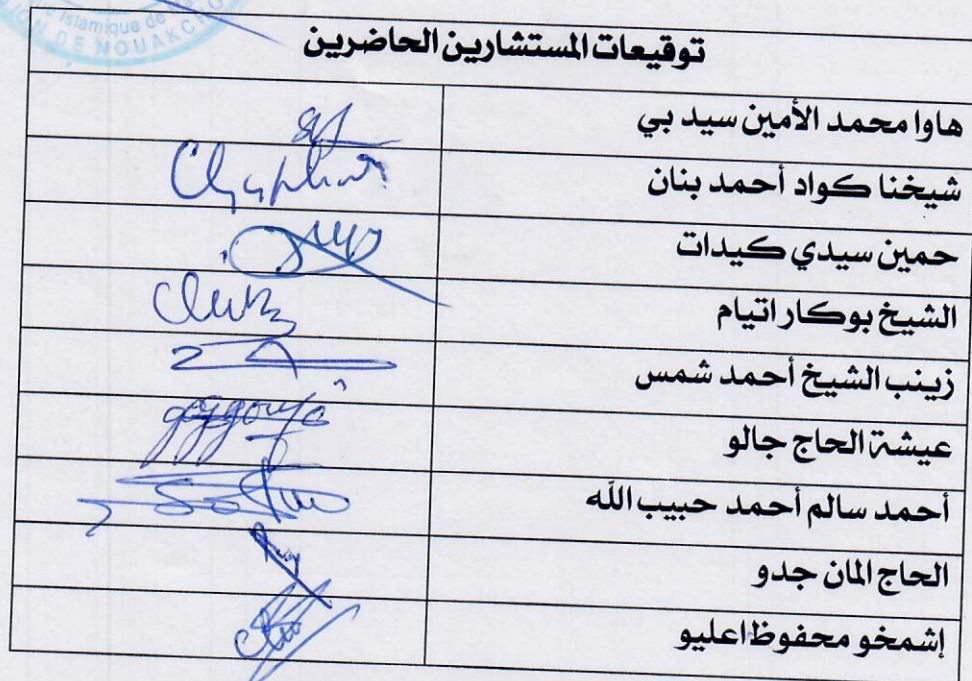 Islamique de
DE NOUAKCHO
توقيعات المستشارين الحاضرين
هاوا محمد الأمين سيد بي
شيخنا كواد أحمد بنان
حمين سيدي كيدات
الشيخ بوكار اتيام
زينب الشيخ أحمد شمس
عيشة الحاج جالو
أحمد سالم أحمد حبيب الله
الحاج المان جدو
إشمخو محفوظ اعليو